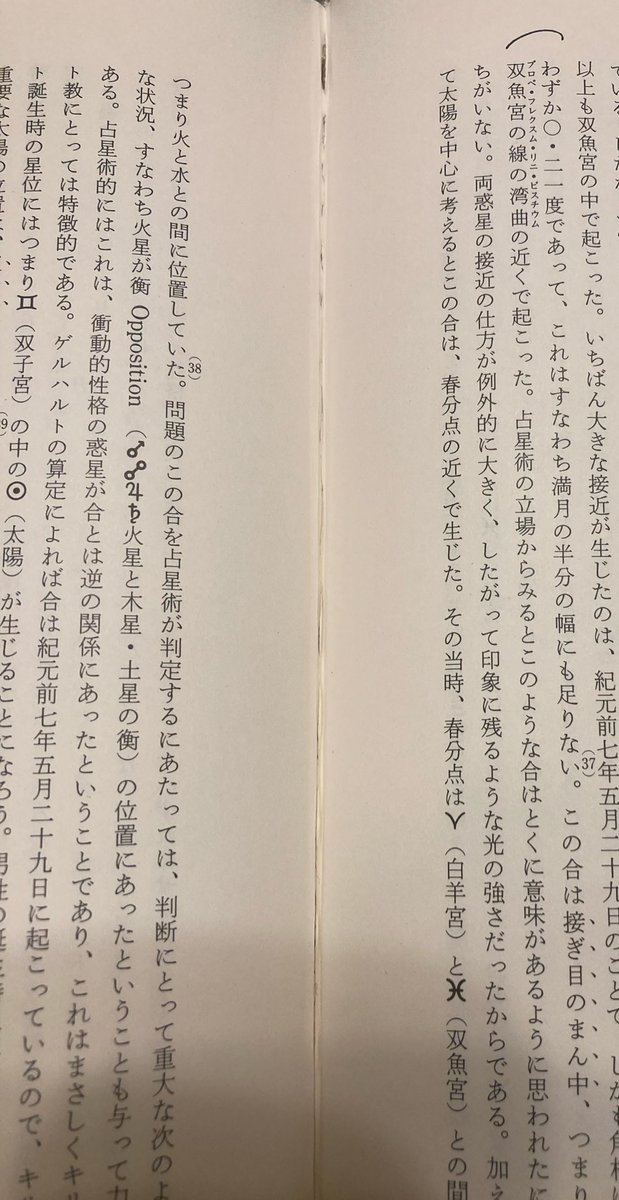 以上も双魚宮の中で起こった。いちばん大きな接近が生じたのは、紀元前七年五月二十九日のことで
わずか〇・二一度であって、これはすなわち満月の半分の幅にも足りない。(37)この合は接ぎ目のまん中、つまり
双魚宮の線の湾曲の近くで起こった。占星術の立場からみるとこのような合はとくに意味があるように思われたに
プロペ・フレクスム・リニ・ピスチウム
ちがいない。両惑星の接近の仕方が例外的に大きく、したがって印象に残るような光の強さだったからである。加え
て太陽を中心に考えるとこの合は、春分点の近くで生じた。その当時、春分点は♈（白羊宮）と♓（双魚宮）との間
つまり火と水との間に位置していた。(38)問題のこの合を占星術が判定するにあたっては、判断にとって重大な次のよ
な状況、すなわち火星が衡 Opposition（♂☍♃♄火星と木星・土星の衡）の位置にあったということも与って力
ある。占星術的にはこれは、衝動的性格の惑星が合とは逆の関係にあったということであり、これはまさしくキル
ト教にとっては特徴的である。ゲルハルトの算定によれば合は紀元前七年五月二十九日に起こっているので、キ
ト誕生時の星位にはつまり♊（双子宮）の中の☉（太陽）が生じることになろう。